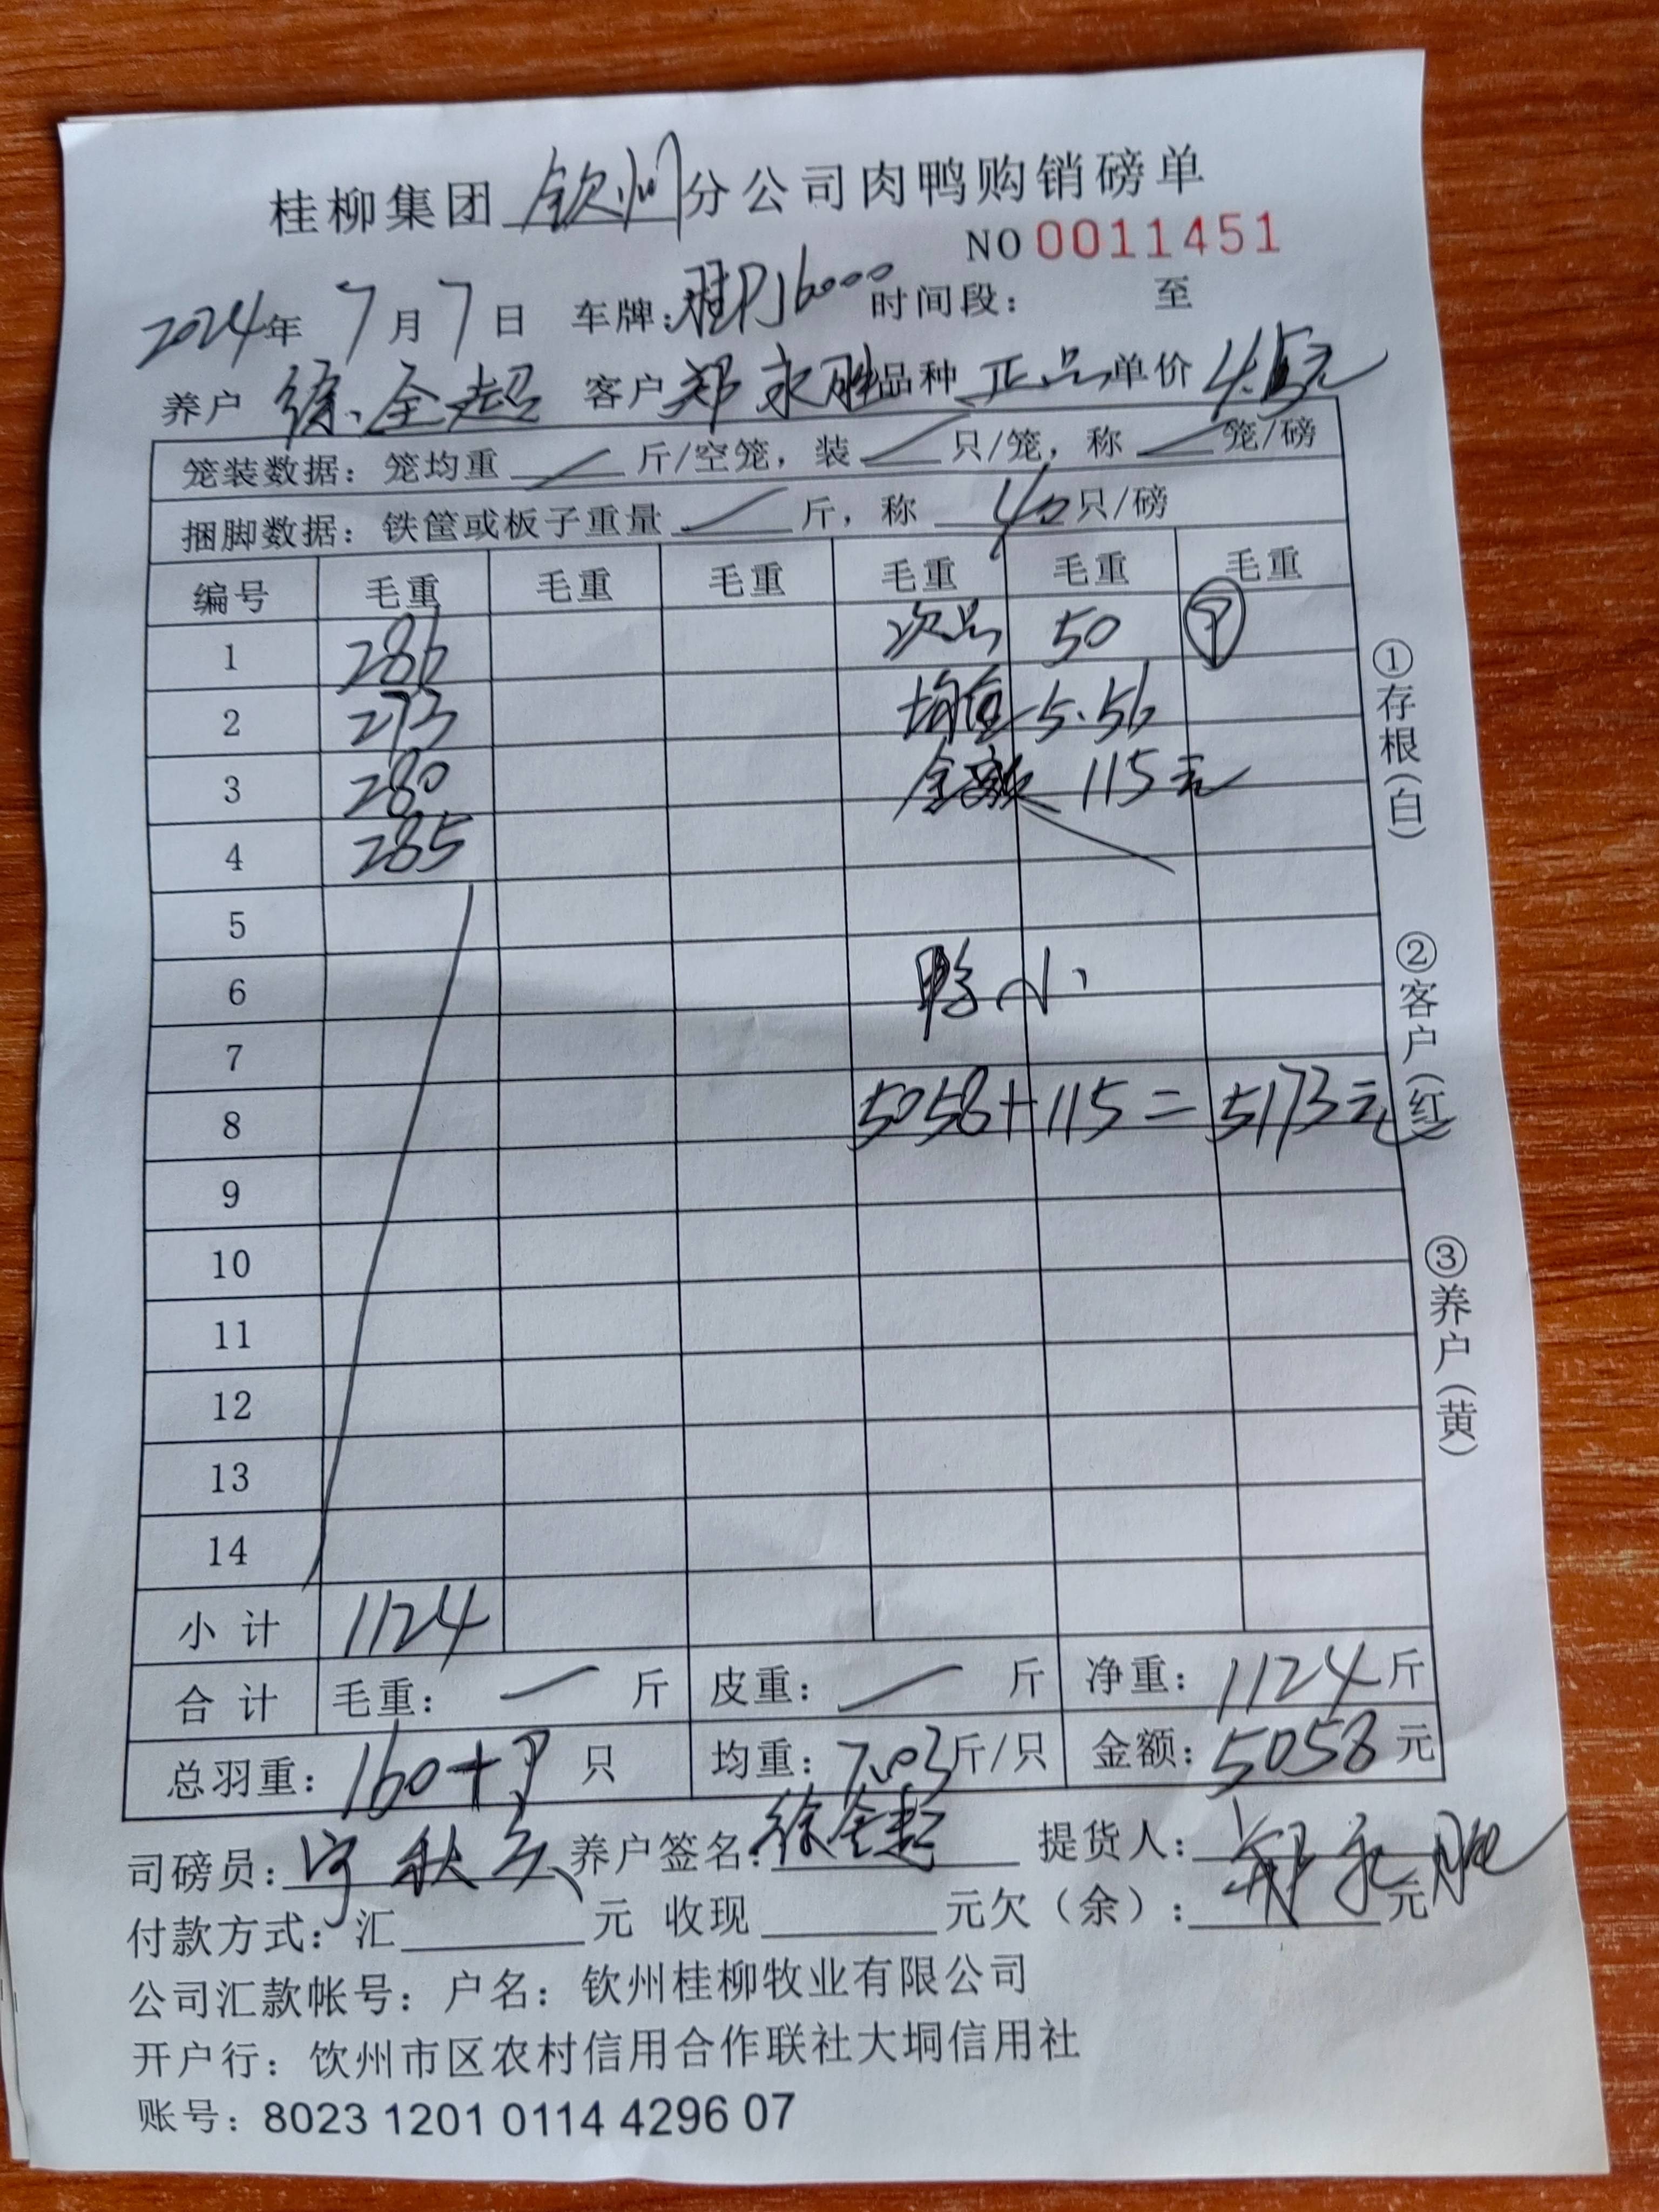 桂柳集团 钦州 分公司肉鸭购销磅单
NO 0011451
2024年 7月 7日 车牌:桂P J6000 时间段: 至
养户 徐全超 客户 郑永胜 品种 正品 单价 4.5元
笼装数据: 笼均重 / 斤/空笼, 装 / 只/笼, 称 / 笼/磅
捆脚数据: 铁筐或板子重量 / 斤, 称 40 只/磅
编号 毛重 毛重 毛重 毛重 毛重 毛重
1 286 次品 50
2 273 均重 5.56
3 280 金额 115元
4 285
5
6 鸭小
7
8 5058+115=5173元
9
10
11
12
13
14
小计 1124
合计 毛重: / 斤 皮重: / 斤 净重: 1124斤
总羽重: 160+ 只 均重: 7.03斤/只 金额: 5058元
司磅员: 养户签名: 徐全超 提货人: 郑永胜
付款方式: 汇 元 收现 元欠(余): 元
公司汇款帐号: 户名: 钦州桂柳牧业有限公司
开户行: 饮州市区农村信用合作联社大垌信用社
账号: 8023 1201 0114 4296 07
①存根(白)
②客户(红)
③养户(黄)